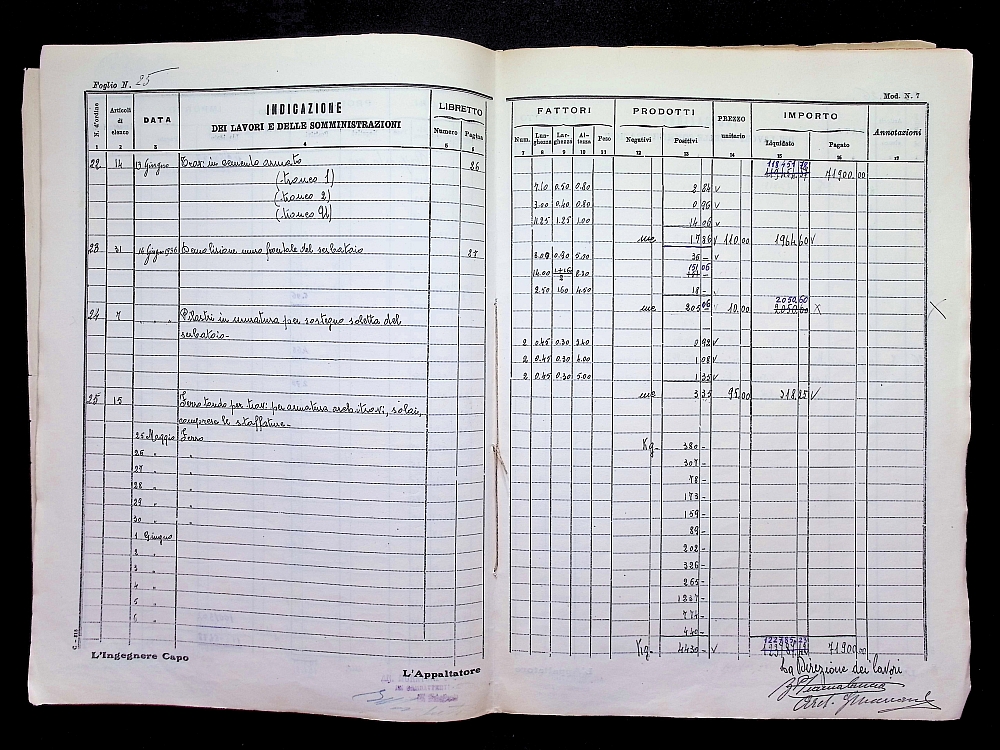 Foglio N. 25
Mod. N. 7
N. d'ordine Articoli di elenco DATA INDICAZIONE DEI LAVORI E DELLE SOMMINISTRAZIONI LIBRETTO Numero Pagina
FATTORI Num. Lunghezza Larghezza Altezza Peso PRODOTTI Negativi Positivi PREZZO unitario IMPORTO Liquidato Pagato Annotazioni
1 2 3 4 5 6 7 8 9 10 11 12 13 14 15 16 17
118451 78
22 14 13 Giugno Trav. in cemento armato 26 71900.00
(tronco 1) 7.10 0.50 0.80 2 84 v
(tronco 2) 3.00 0.40 0.80 0 96 v
(tronco 4) 11.25 1.25 1.00 14 06 v
mc 17 86 v 110.00 1964 60 v
23 31 16 Giugno 1936 Demolizione muro frontale del serbatoio 27 3.00 0.90 5.00 36 - v
14.00 1+16/2 8.30 151 06
2.50 160 4.50 18 -
2050.60
mc 205 06 10.00 2050.60 X X
24 7 " " Pilastri in muratura per sostegno soletta del
serbatoio-
2 0.45 0.30 3.40 0 92 v
2 0.45 0.30 4.00 1 08 v
2 0.45 0.30 5.00 1 35 v
mc 3 35 95.00 318.25 v
25 15 Ferro tondo per travi per armatura architravi, solai,
comprese le staffature-
25 Maggio Ferro Kg- 380 -
26 " " 307 -
27 " " 78 -
28 " " 173 -
29 " " 159 -
30 " " 89 -
1 Giugno 202 -
2 " 326 -
3 " 265 -
4 " 1237 -
5 " 774 -
6 " 440 -
Kg- 4430 - v 71900.00
C - 213
L'Ingegnere Capo
L'Appaltatore
La Direzione dei lavori